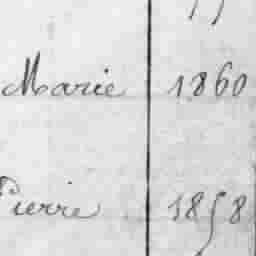 Marie 1860
Pierre 1858